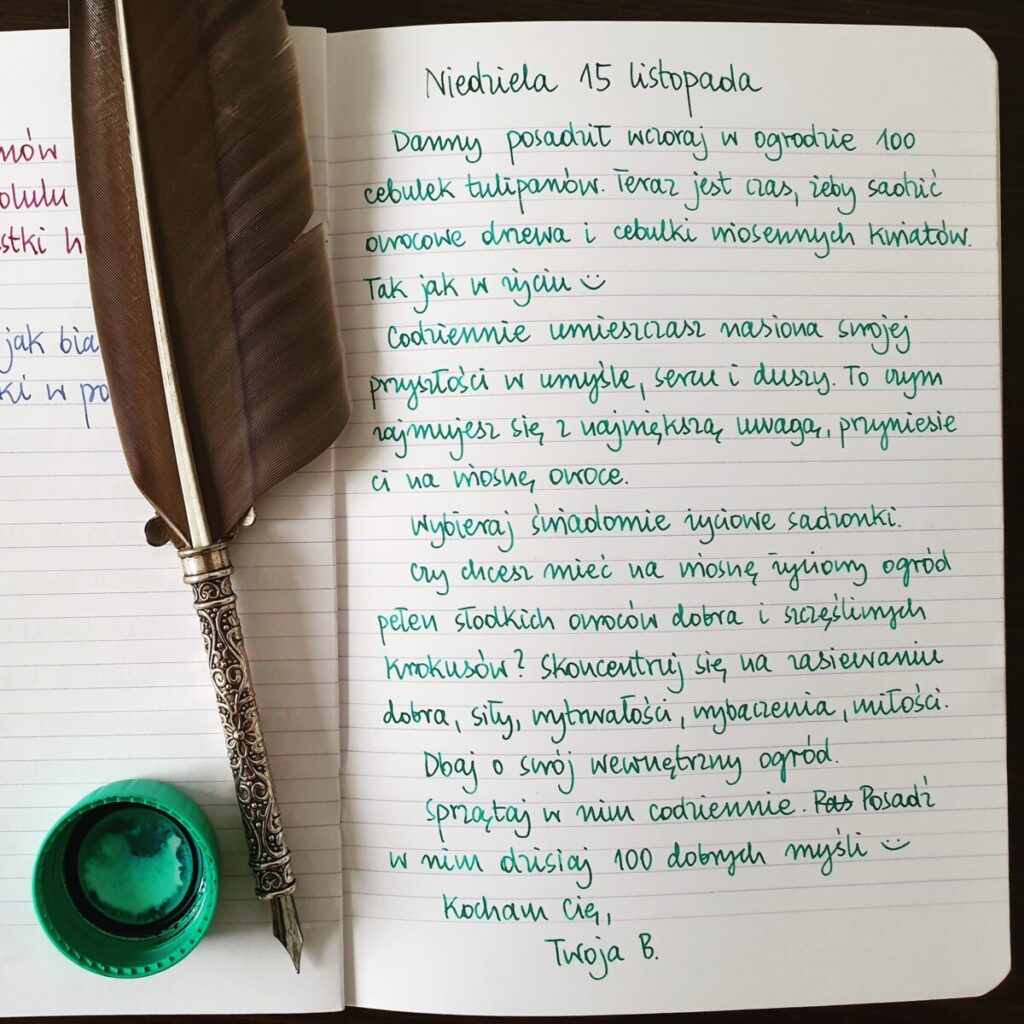 mów
olulu
stki h
jak bia
ki w po
Niedziela 15 listopada
Danny posadził wczoraj w ogrodzie 100
cebulek tulipanów. Teraz jest czas, żeby sadzić
owocowe drzewa i cebulki wiosennych kwiatów.
Tak jak w życiu ☺
Codziennie umieszczasz nasiona swojej
przyszłości w umyśle, sercu i duszy. To czym
zajmujesz się z największą uwagą, przyniesie
ci na wiosnę owoce.
Wybieraj świadomie życiowe sadzonki.
Czy chcesz mieć na wiosnę życiowy ogród
pełen słodkich owoców dobra i szczęśliwych
krokusów? Skoncentruj się na zasiewaniu
dobra, siły, wytrwałości, wybaczenia, miłości.
Dbaj o swój wewnętrzny ogród.
Sprzątaj w nim codziennie. Posadź
w nim dzisiaj 100 dobrych myśli ☺
Kocham Cię,
Twoja B.